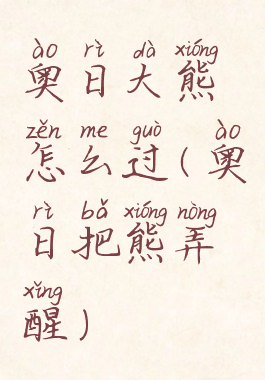 ào rì dà xióng
奥日大熊
zěn me guò ào
怎么过(奥
rì bǎ xióng nòng
日把熊弄
xǐng
醒)